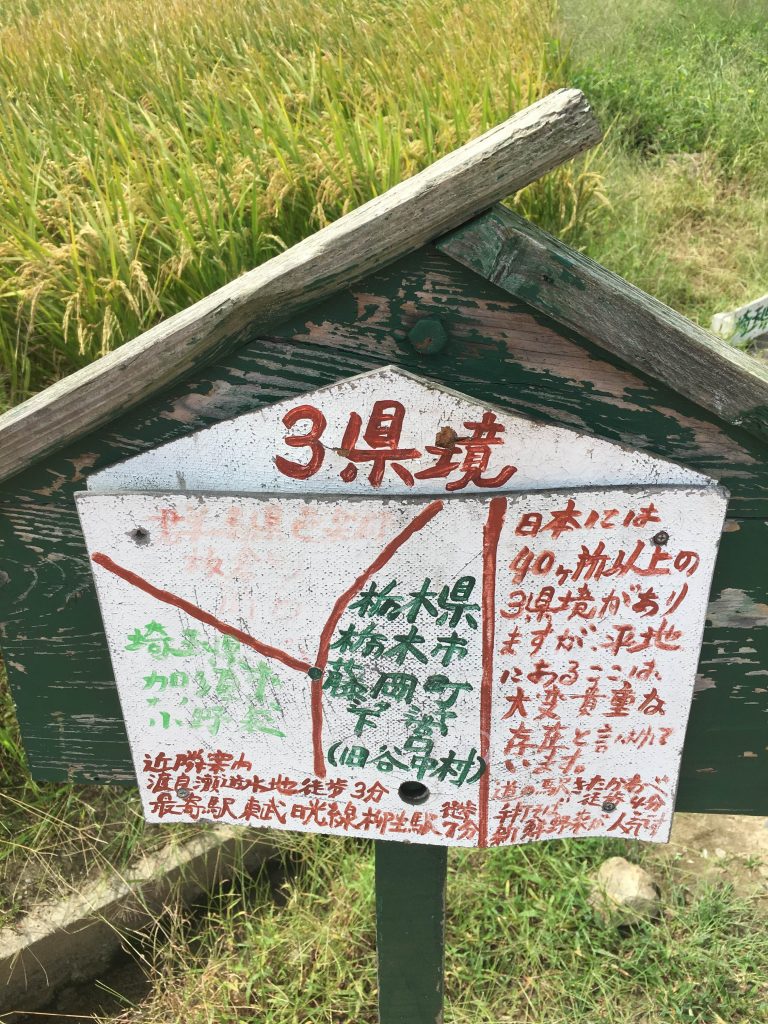 3県境
群馬県邑楽郡
板倉町
栃木県
栃木市
藤岡町
下宮
(旧谷中村)
埼玉県
加須市
小野袋
日本には
40ヶ所以上の
3県境があり
ますが、平地
にあるここは、
大変貴重な
存在と言われて
います。
道の駅きたかわべ
徒歩4分
手打そば
新鮮野菜が人気です
近隣案内
渡良瀬遊水地徒歩3分
最寄駅東武日光線柳生駅徒歩7分